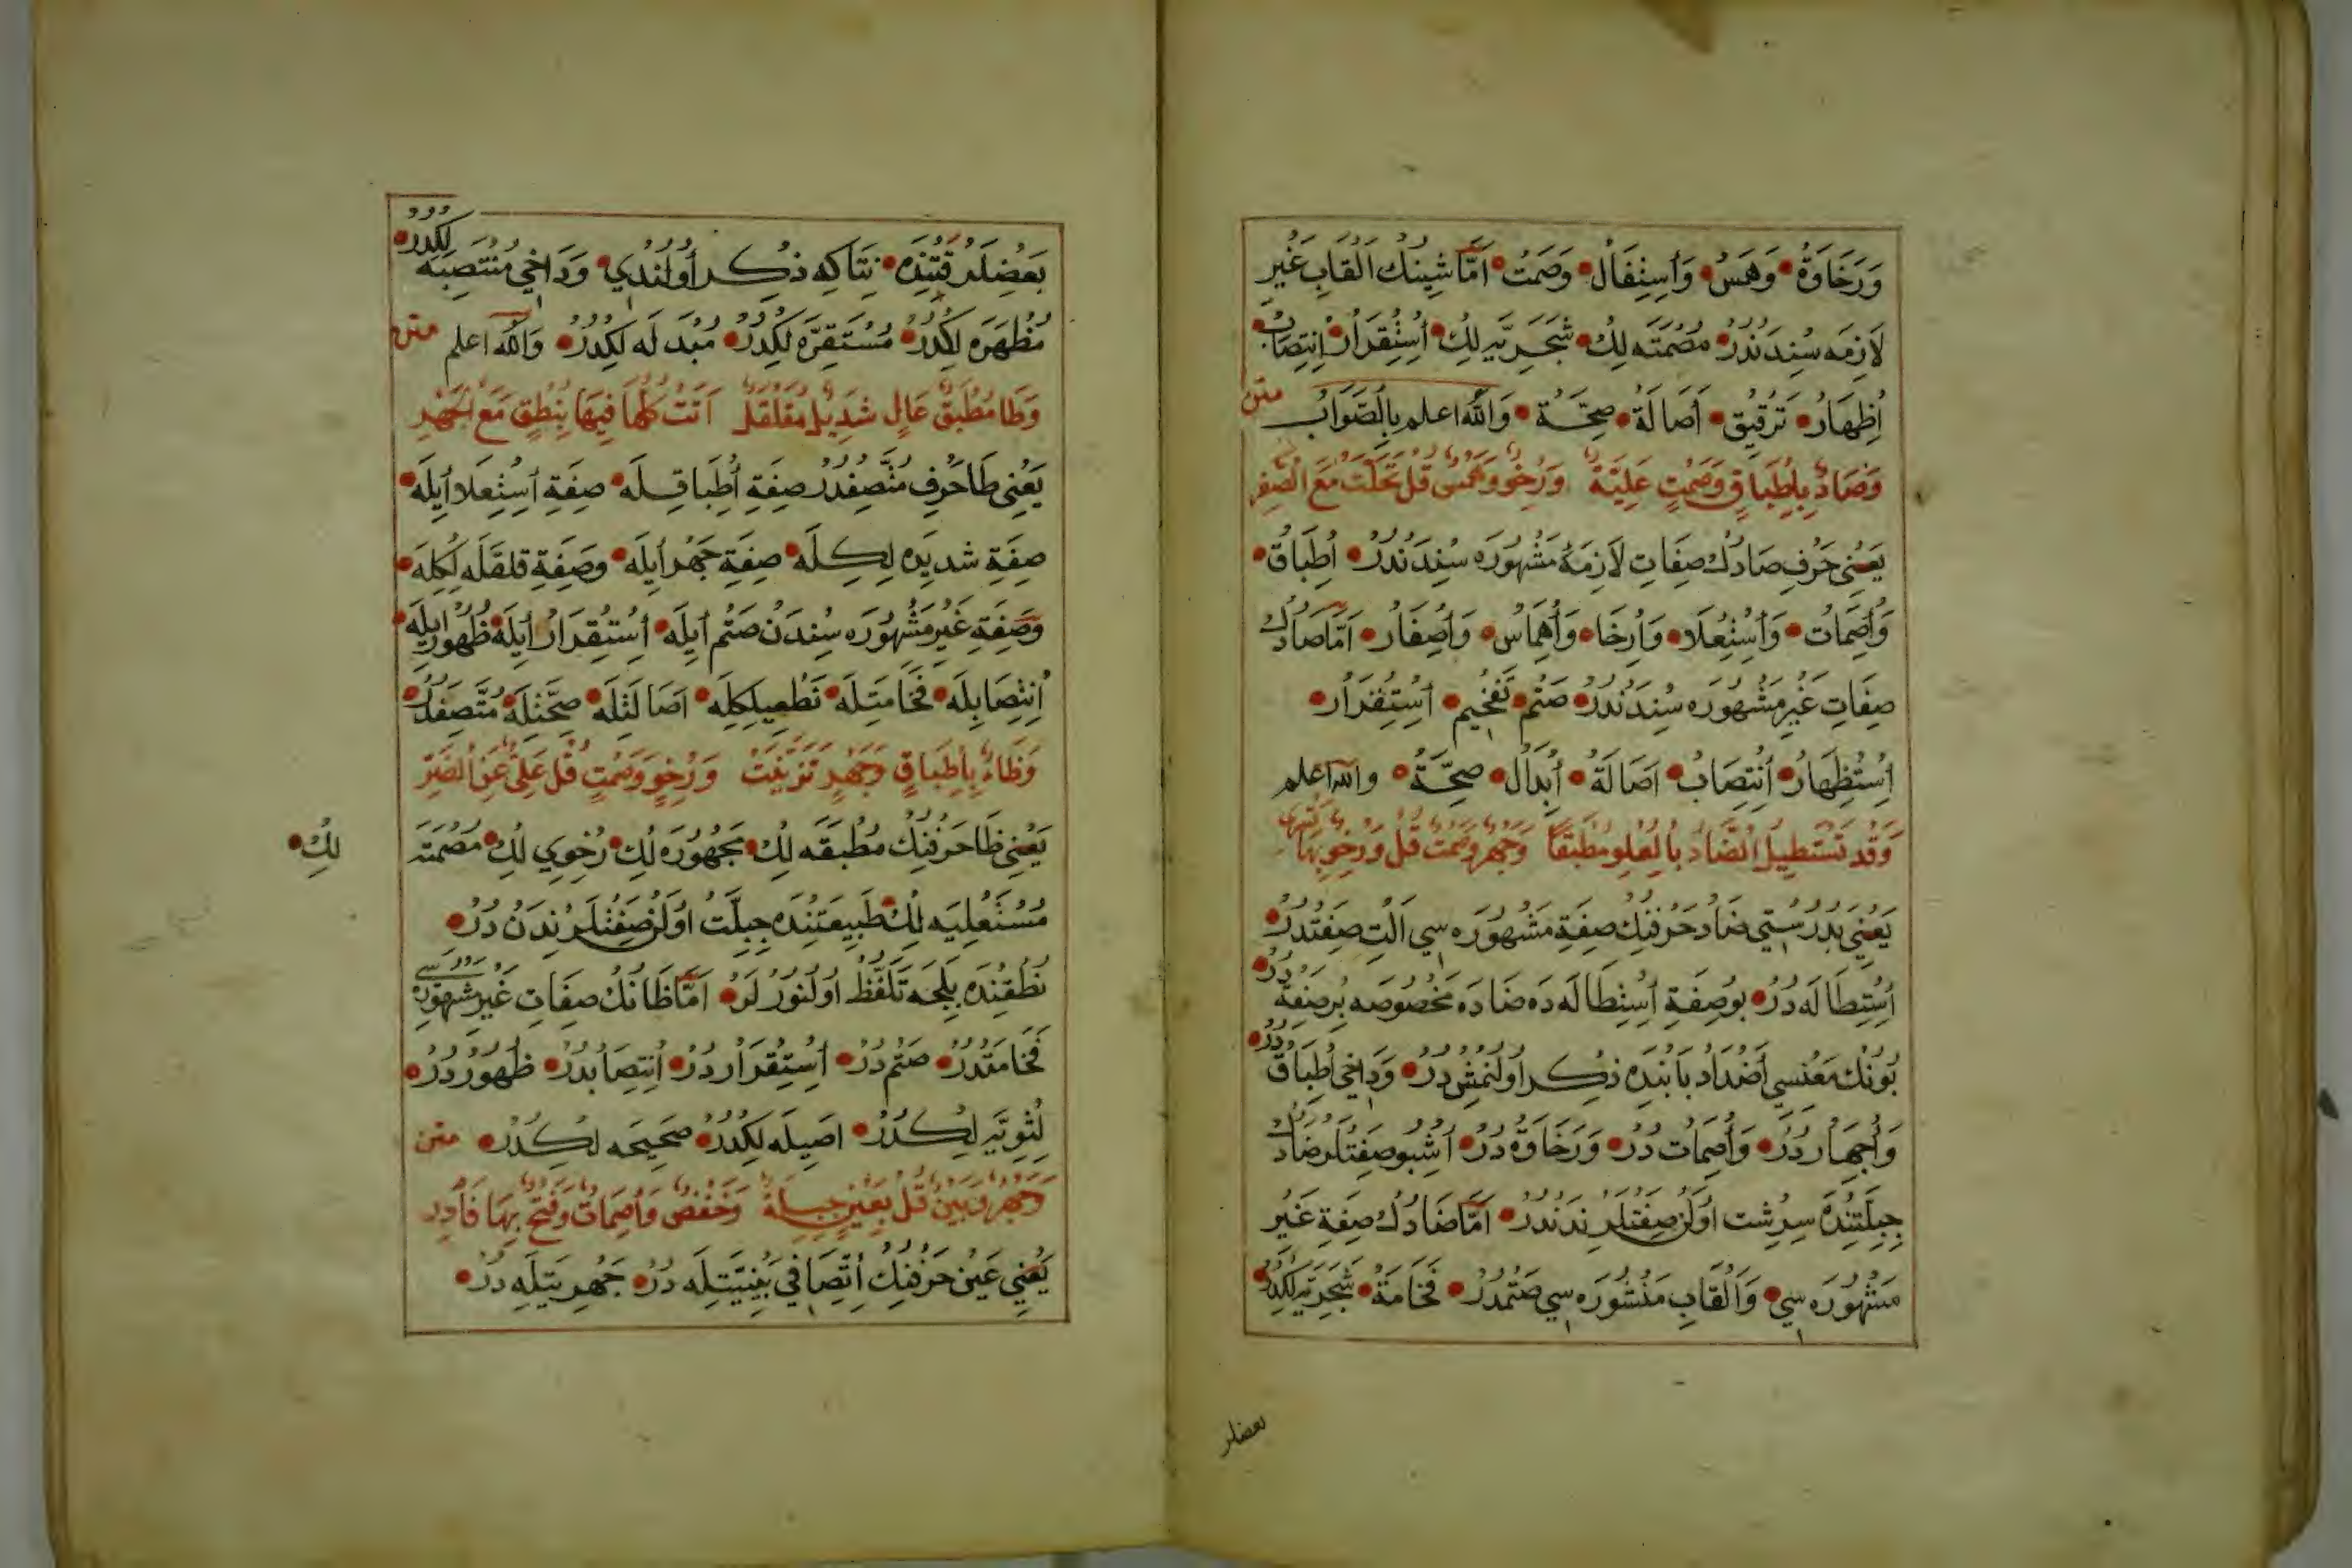 وَرَخَاوَةُ • وَهَمْسُ • وَاَسِتِفَالْ • وَصَمْتُ • اَمَّا شِينِكْ اَلْقَابِ غَيْرِ
لَازِمَه سِنْدَنْدُرْ • مُصْمَتَه لِكْ • شَجَرِيَّه لِكْ • اُسِتِقْرَارُ • اِنْتِصَابْ •
اِظْهَارُ • تَرْقِيقْ • اَصَالَةُ • صِحَّةُ • وَاللّٰهُ اعلم بِالصَّوَابْ متن
وَصَادٌ بِاِطْبَاقٍ وَصَمْتٍ عَلِيَّةٌ وَرِخْوٍ وَهَمْسٍ قُلْ تَحَلَّتْ مَعَ الصَّفِرِ
يَعْنِي حَرْفِ صَادُكْ صِفَاتِ لَازِمَۀ مَشْهُورَه سِنْدَنْدُرْ • اِطْبَاقْ •
وَاُصِمَاتْ • وَاَسْتِعْلَا • وَاَرِخَا • وَاُهِمَاسْ • وَاُصِفَارْ • اَمَّا صَادُكْ
صِفَاتِ غَيْرِ مَشْهُورَه سِنْدَنْدُرْ • صَتْم • تَفْخِيم • اَسِتِقْرَارْ •
اَسِتِظْهَارُ • اَنْتِصَابْ • اَصَالَةُ • اُبْدَالْ • صِحَّةُ • والله اعلم
وَقَدْ تَسْتَطِيلُ الضَّادُ بِالْعُلُوِ مُطْبَقًا وَجَهْرٍ وَصَمْتٍ قُلْ وَرِخْوٍ بِهَا
يَعْنِي بِدُرُسْتِي ضَادْ حَرْفِنِكْ صِفَةِ مَشْهُورَه سِي اَلْتِ صِفَتْدُرْ •
اَسِتِطَالَه دُرْ • بُو صِفَةِ اَسْتِطَالَه دَه ضَادَه مَخْصُوصَه بُر صِفَةْ دُرْ •
بُونُكْ مَعْنَسِي اَضْدَادْ بَابِنْدَه ذِكِر اُولِنْمِشْ دُرْ • وَدَاخِي اُطِبَاقْ دُرْ •
وَاُجِهَارْ دُرْ • وَاُصِمَاتْ دُرْ • وَرَخَاوَةْ دُرْ • اُشْبُو صِفَتْلَر ضَادُكْ
جِبِلَّتِنْدَه سِرِشْتْ اُولَنْ صِفَتْلَرِنْدَنْدُرْ • اَمَّا ضَادُكْ صِفَةِ غَيْرِ
مَشْهُورَه سِي • وَاَلْقَابِ مَنْشُورَه سِي صَتْمْدُرْ • فَخَامَةُ • شَجَرِيَّه لِكْدُرْ •
بعضلر
بَعْضِلَر قَتِنْدَه • نِتَاكِه ذِكِر اُولِنْدِي • وَدَاخِي مُنْتَصِبَه لِكْدُرْ •
مُظْهَرَه لِكْدُرْ • مُسْتَقِرَّه لِكْدُرْ • مُبْدَلَه لِكْدُرْ • وَاللّٰه اعلم متن
وَطَا مُطْبَقٌ عَالٍ شَدِيدٌ مُقَلْقَلٌ اَتَتْ كُلُّهَا فِيهَا بِنُطْقٍ مَعَ الجَهْرِ
يَعْنِي طَا حَرْفِ مُتَّصِفْدُرْ صِفَةِ اُطِبَاقِلَه • صِفَةِ اَسِتِعْلَا اَيِلَه •
صِفَةِ شَدِيدَه لِكِلَه • صِفَةِ جَهْر اَيِلَه • وَصِفَةِ قَلْقَلَه لِكِلَه •
وَصِفَةِ غَيْرِ مَشْهُورَه سِنْدَنْ صَتْم اَيِلَه • اُسْتِقْرَارْ اَيِلَه • ظُهُور اَيِلَه •
اِنْتِصَابِلَه • فَخَامَتِلَه • نَطْعِيلِكِلَه • اَصَالَتِلَه • صِحَّتِلَه • مُتَّصِفْدُرْ •
وَظَاءٌ بِاِطْبَاقٍ وَجَهْرٍ تَزَيَّنَتْ وَرِخْوٍ وَصَمْتٍ قُلْ عَلِيٍّ عَنِ الضَّيْرِ
يَعْنِي ظَا حَرْفِنِكْ مُطْبَقَه لِكْ • مَجْهُورَه لِكْ • رُخْوِي لِكْ • مُصْمَتَه
لِكْ •
مُسْتَعْلِيَه لِكْ طَبِيعَتِنْدَه جِبِلَّتْ اُولَنْ صِفَتْلَرِنْدَنْ دُرْ •
نُطْقِنْدَه بِيلَجَه تَلَفُّظْ اُولِنُورْلَرْ • اَمَّا ظَانُكْ صِفَاتِ غَيْرِ مَشْهُورَه سِي
فَخَامَتْدُرْ • صَتْم دُرْ • اَسِتِقْرَارْ دُرْ • اِنْتِصَابْدُرْ • ظُهُورْ دُرْ •
لِثَوِيَّه لِكْدُرْ • اَصِيلَه لِكْدُرْ • صَحِيحَه لِكْدُرْ • متن
وَجَهْرٌ وَبَيْنٌ قُلْ بِعَيْنٍ جِبِلَّةً وَخَفْضٍ وَاِصْمَاتٍ وَفَتْحٍ بِهَا فَادْرِ
يَعْنِي عَيْن حَرْفِنِكْ اِتِّصَافِي بَيْنِيَّتِلَه دُرْ • جَهْرِيَّتِلَه دُرْ •